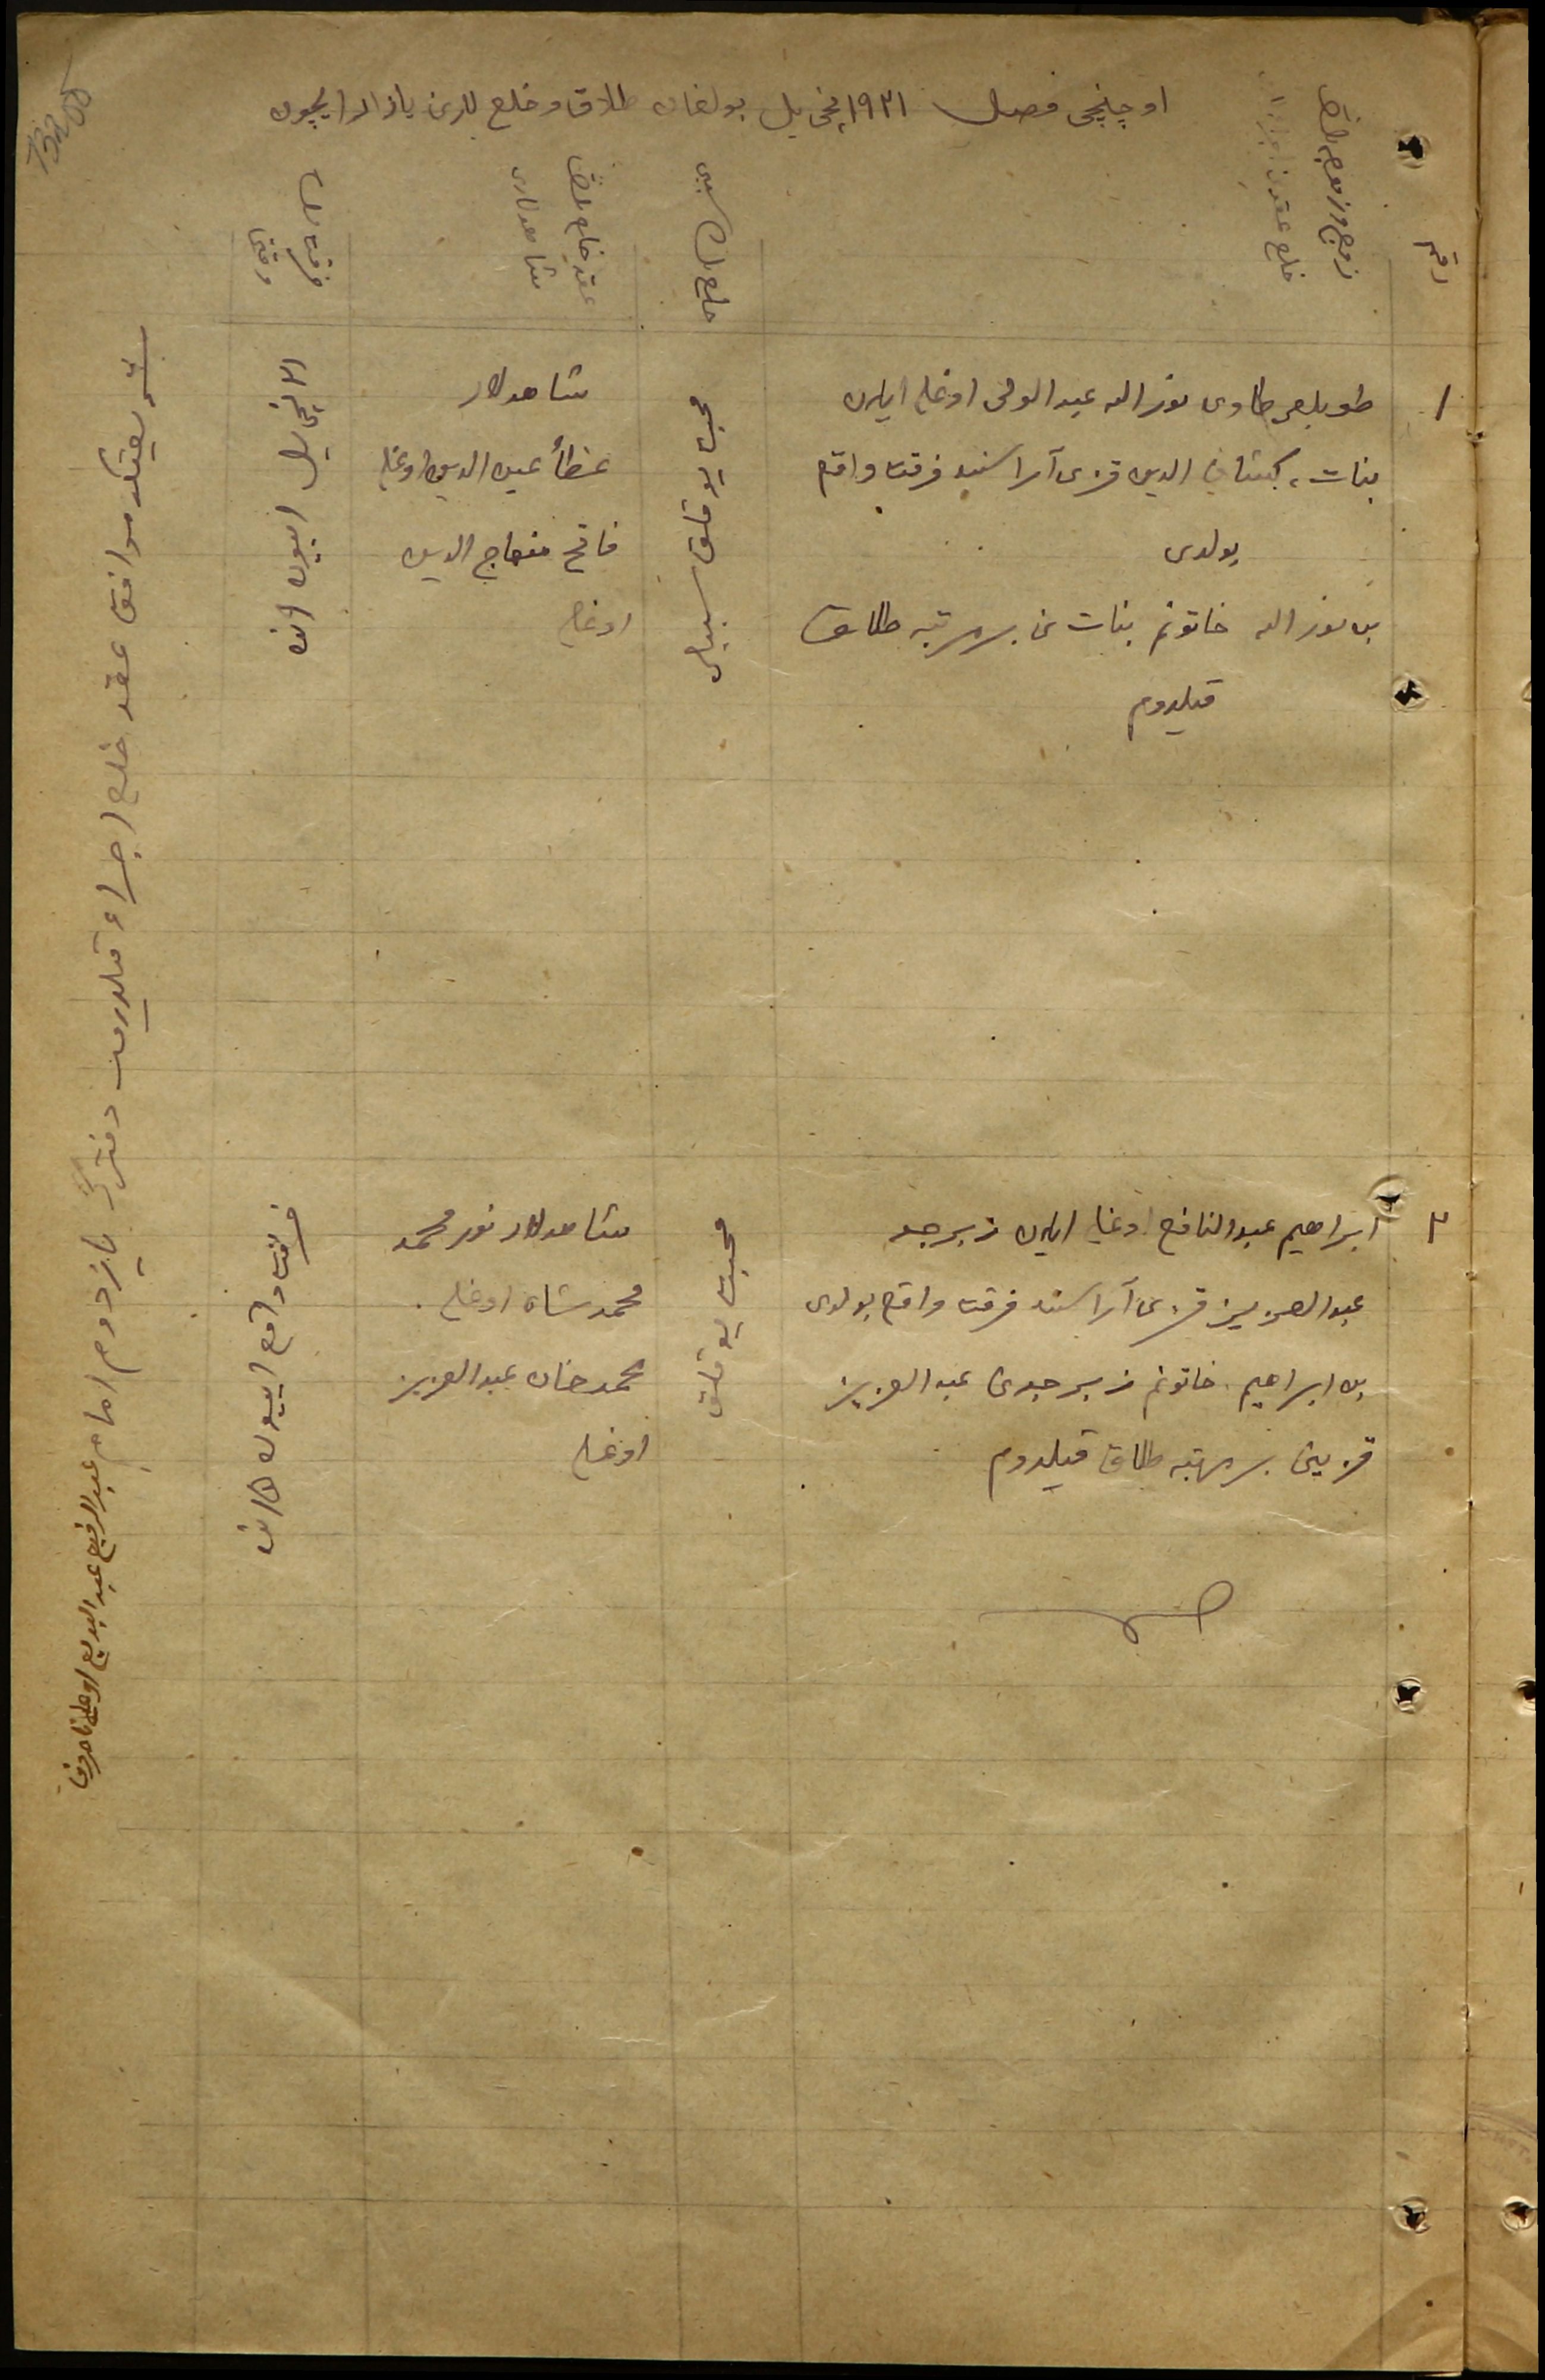 اوچنچی فصل ۱۹۳۱ نچی یل بولغان طلاق و خلع لارنی یازار ایچون
رقم
زوج و زوجه لرنڭ
خلع عقدن
خلع نڭ سببی
عقد خلع نڭ
شاهدلاری
فرقت نڭ
وقتی
۱
نورالله عبدالولی اوغلی ایله
بنات، الدین قزی آراسنده فرقت واقع
بولدی
بن نورالله خاتونم بنات نی بر مرتبه طلاق
قیلدوم
محبت یوقلق سببلی
شاهدلار
عطأ عین الدین اوغلی
فاتح منهاج الدین
اوغلی
۳۱ نچی یل
۲
ابراهیم عبدالنافع اوغلی ایله زبرجد
عبدالعزیز قزی آراسنده فرقت واقع بولدی
بن ابراهیم خاتونم زبرجدنی عبدالعزیز
قزینی بر مرتبه طلاق قیلدوم
محبت یوقلق
شاهدلار نور محمد
محمدشاه اوغلی
محمدخان عبدالعزیز
اوغلی
فرقت واقع
شریعتکه موافق عقد خلع اجراء قیلدردم دفترگه یازدوم امام عبدالرفیع عبدالبدیع اوغلی